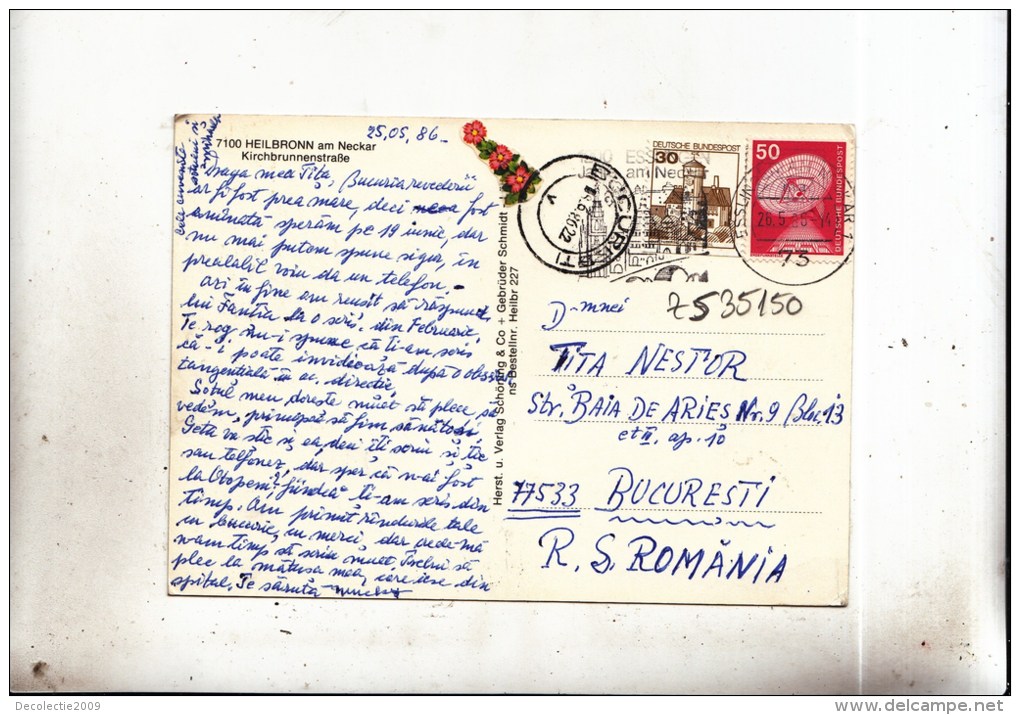 25.05.86
7100 HEILBRONN am Neckar
Kirchbrunnenstraße
Draga mea Tita, Bucuria revederii
ar fi fost prea mare, deci fost
amînată sperăm pe 19 iunie, dar
nu mai putem spune sigur, în
prealabil voiu da un telefon.
Azi în fine am reușit să răspund
lui Fantia la o scris. din Februarie.
Te rog nu-i spune că ți-am scris
că-i poate invidioază după o
tangențială în ac. direcție.
Soțul meu dorește mult să plece să
vedem, principal să fim sănătoși,
Geta va ști și ea, deci îți scriu și ție
sau telefonez, dar sper că n-ai fost
la Otopeni? fiindcă ți-am scris din
timp. Am primit rîndurile tale
cu bucurie, cu merci, dar crede-mă
n-am timp să scriu mult. Trebui să
plec la mătușa mea, care iese din
spital. Te sărută
Herst. u. Verlag Schöning & Co + Gebrüder Schmidt
ns Bestellnr. Heilbr 227
DEUTSCHE BUNDESPOST
30
50
DEUTSCHE BUNDESPOST
ESSLINGEN
am Neckar
BUCUREȘTI
73
D-mnei
7535150
TITA NESTOR
Str. BAIA DE ARIEȘ Nr. 9 Bluc 13
et II, ap. 10
77533 BUCUREȘTI
R. S. ROMÂNIA
Decolectie2009
www.delcampe.net